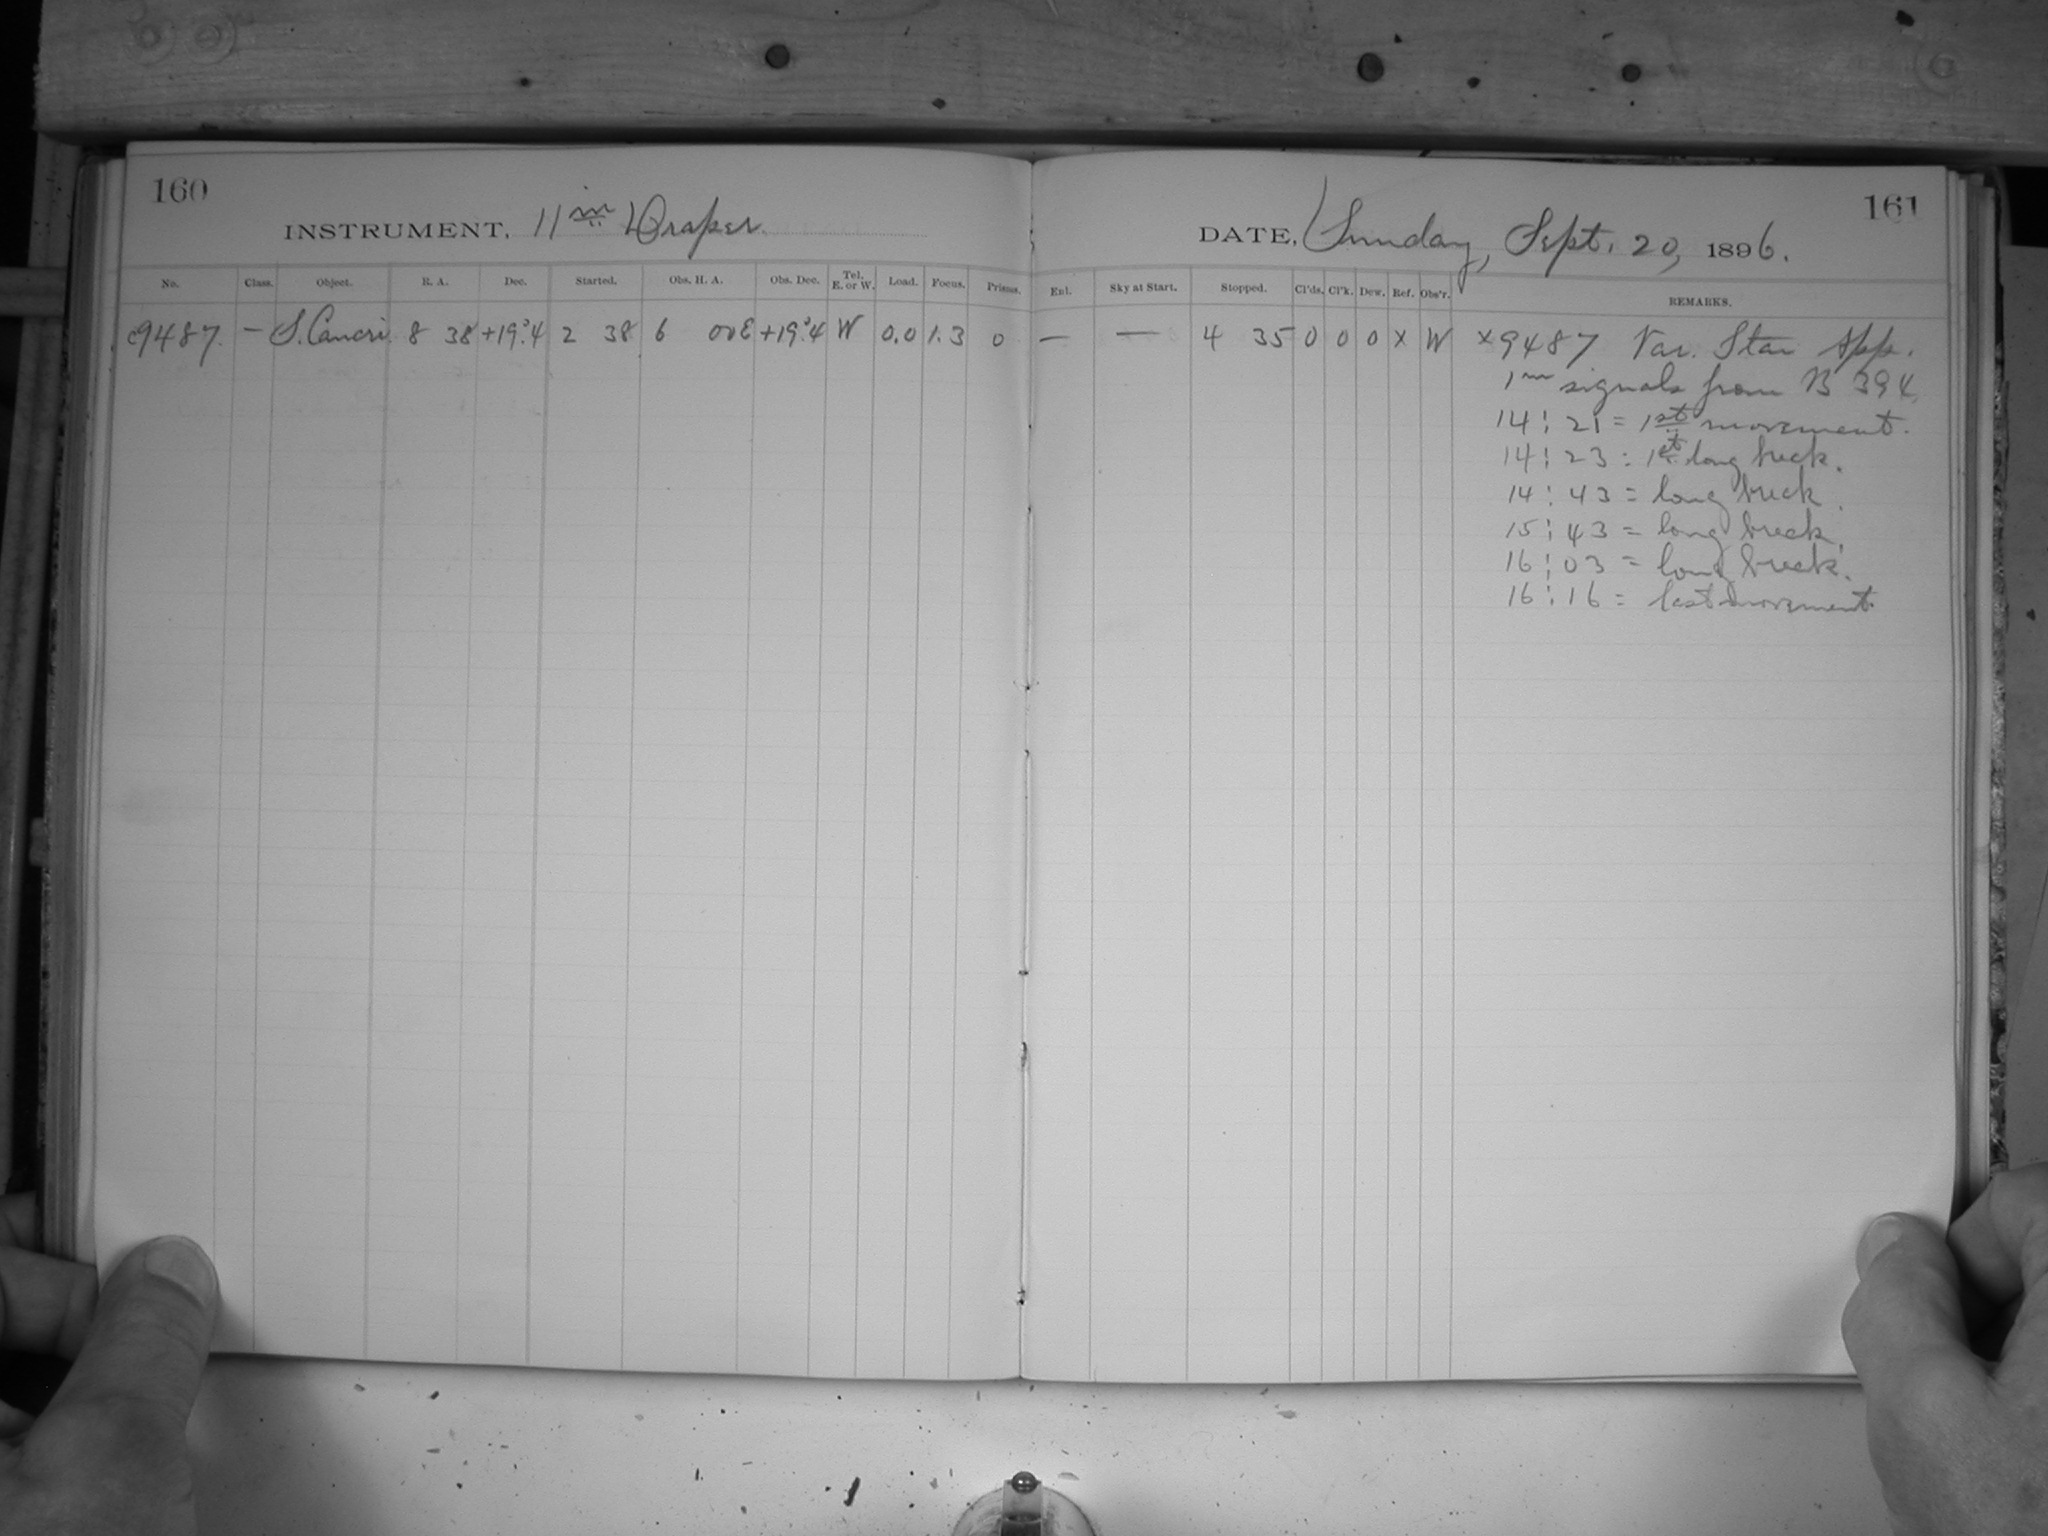 160
INSTRUMENT, 11 in Draper.
No. Class. Object. R. A. Dec. Started. Obs. H. A. Obs. Dec. Tel. E. or W. Load. Focus. Prisms.
c9487. — S. Cancri 8 38 +19.°4 2 38 6 00E +19.°4 W 0.0 1.3 0
161
DATE, Sunday, Sept. 20, 1896.
Enl. Sky at Start. Stopped. Cl'ds. Cl'k. Dew. Ref. Obs'r. REMARKS.
— — 4 35 0 0 0 x W x9487 Var. Star App.
1m signals from B 394.
14 : 21 = 1st movement.
14 : 23 = 1st long break.
14 : 43 = long break.
15 : 43 = long break.
16 : 03 = long break.
16 : 16 = last movement.